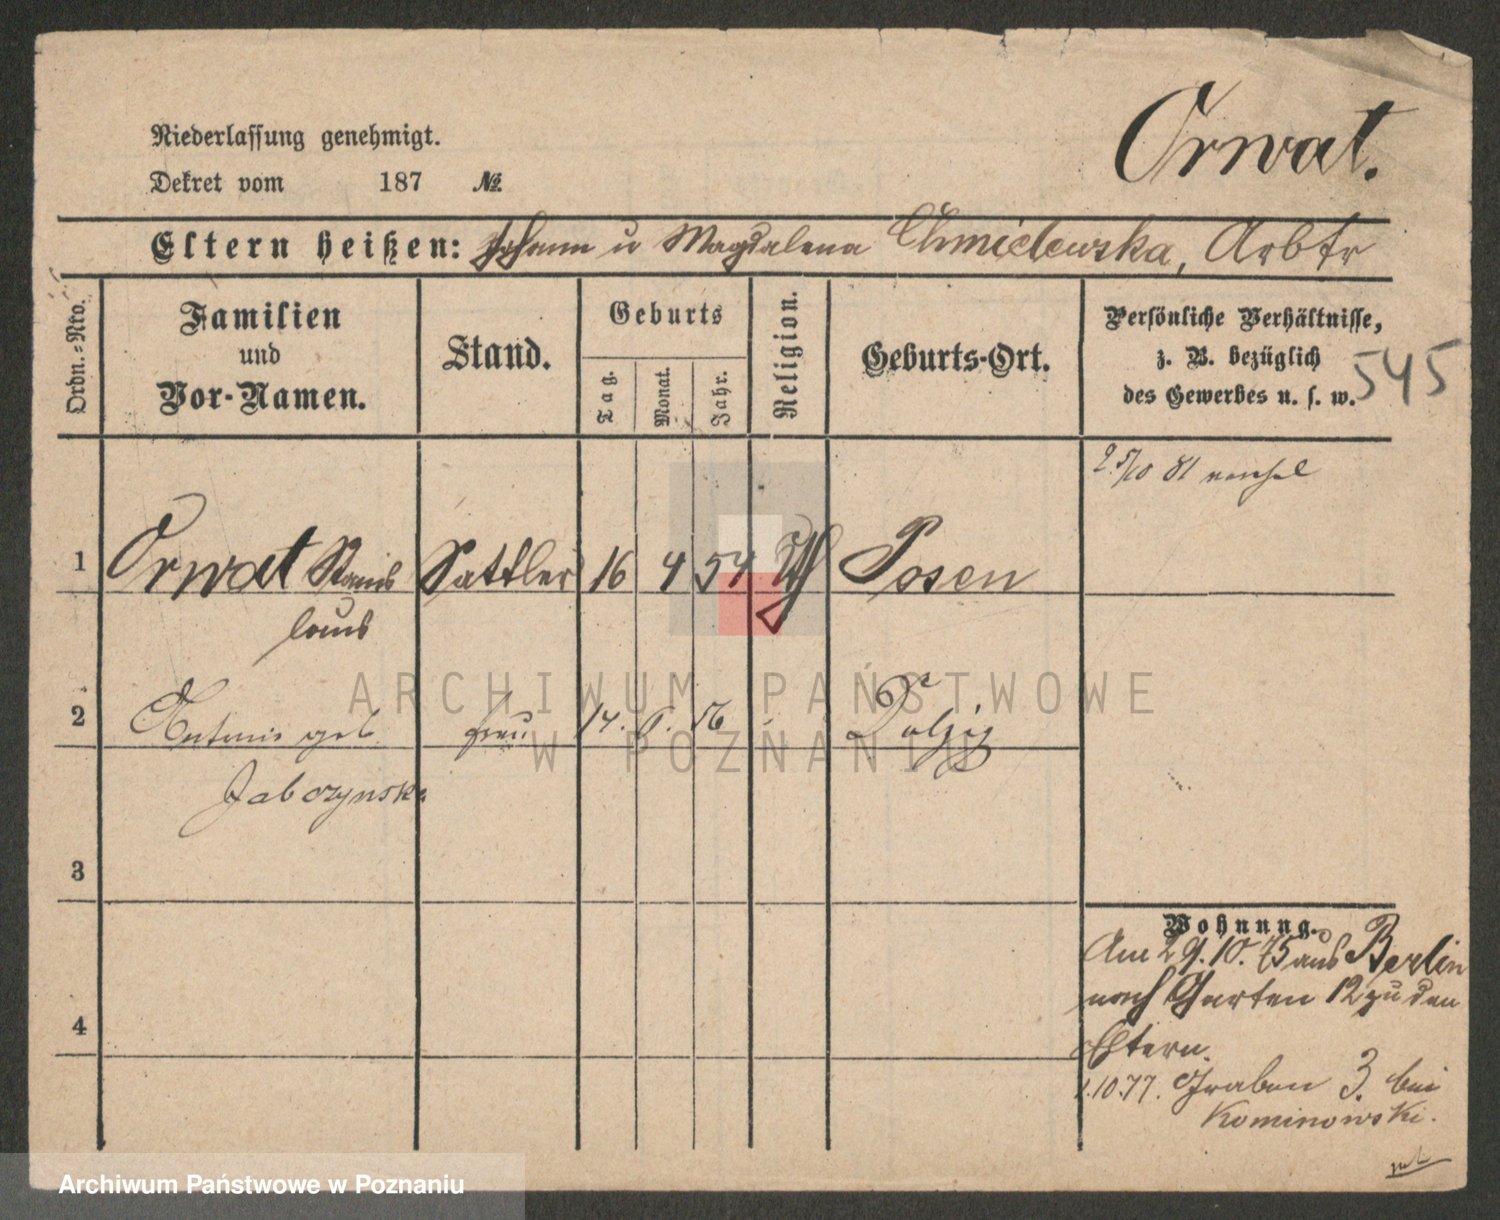 Orwat.
Niederlassung genehmigt.
Dekret vom 187 №
Eltern heißen: Johann u Magdalena Chmielewska, Arbtr
Ordn.-Nro.
Familien
und
Vor-Namen.
Stand.
Geburts
Tag.
Monat.
Jahr.
Religion.
Geburts-Ort.
Persönliche Verhältnisse,
z. B. bezüglich
des Gewerbes u. s. w.
545
25/10 81
1 Orwat Stanis Sattler 16 4 54 Posen
laus
ARCHIWUM PAŃSTWOWE
W POZNANIU
2 Antonie geb. Frau 14. 56 Dolzig
Jabczynska
3
4
Wohnung.
Am 29.10.75 aus Berlin
nach Garten 12 zu den
Eltern.
1.10.77. Graben 3. bei
Kominowski.
Archiwum Państwowe w Poznaniu